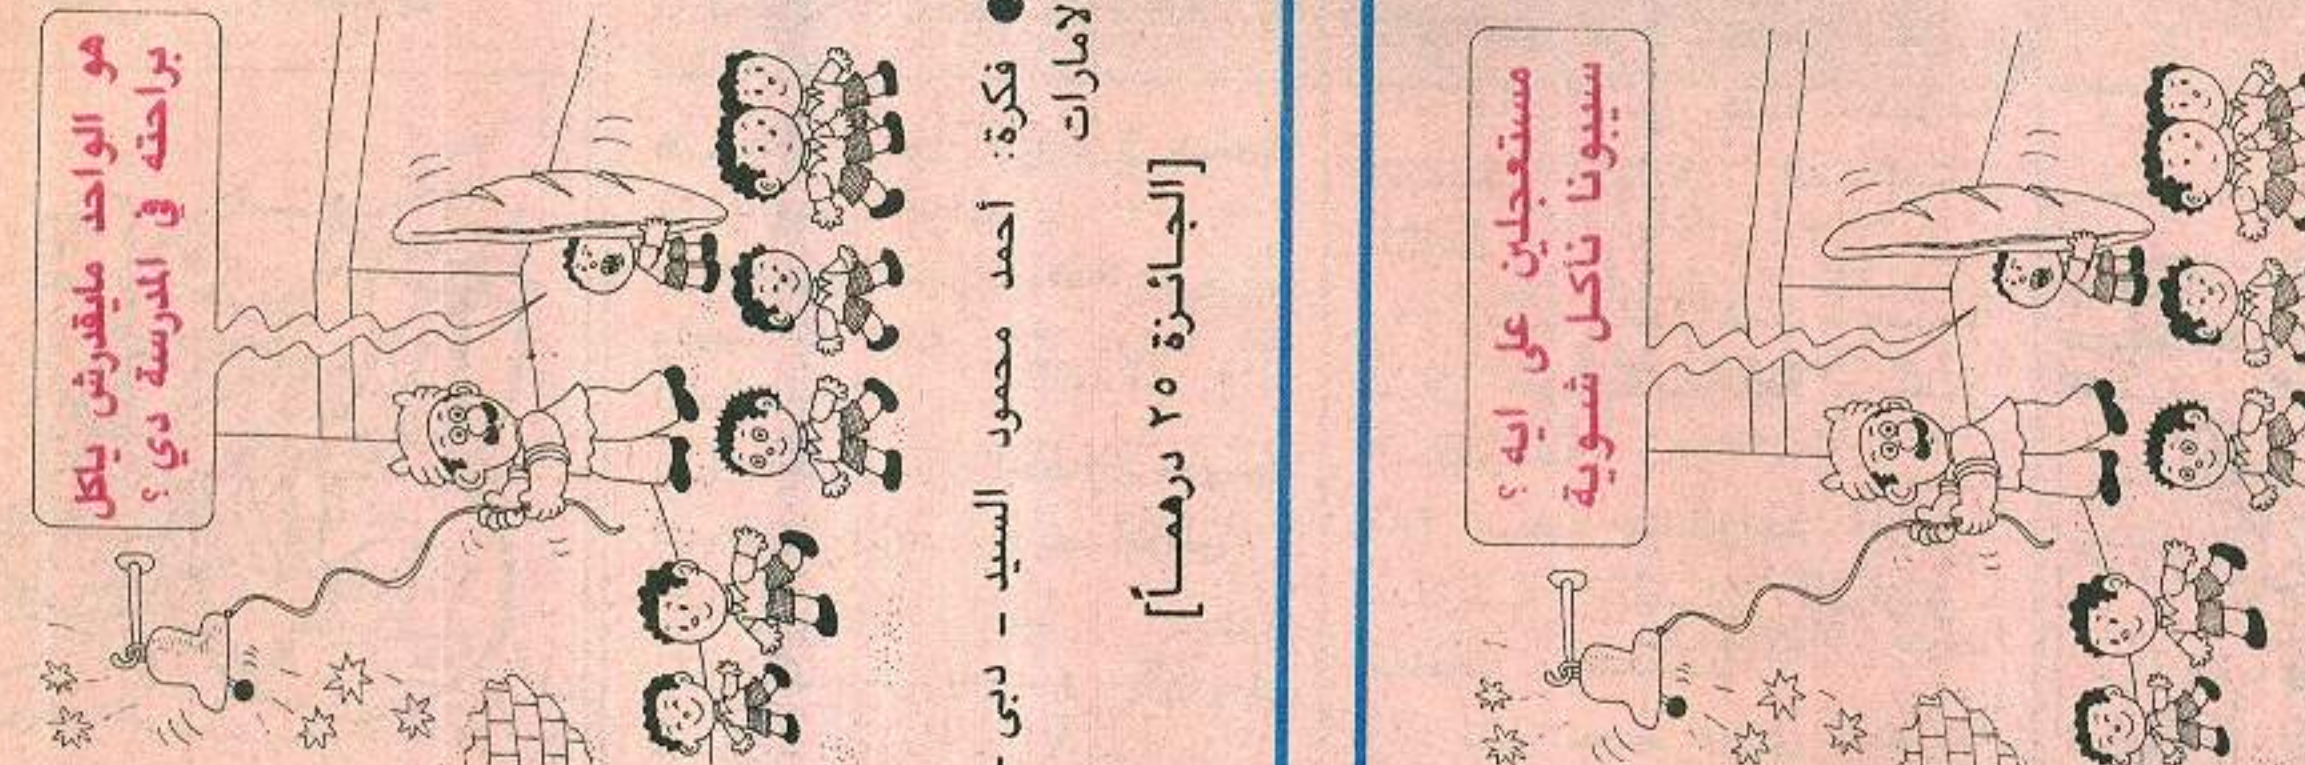 هو الواحد مايقدرش ياكل
براحته في المدرسة دي ؟
● فكرة: أحمد محمود السيد - دبى -
الامارات
[الجـائـزة ٢٥ درهمـــاً]
مستعجلين على ايه ؟
سيبونا نأكـل شـوية